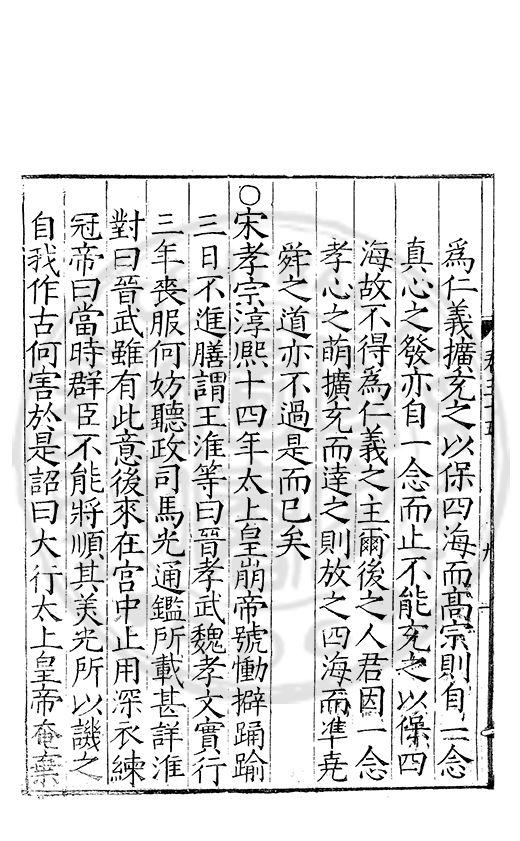 為仁義擴充之以保四海而髙宗則自一念
真心之發亦自一念而止不能充之以保四
海故不得為仁義之主爾後之人君因一念
孝心之萌擴充而達之則放之四海而準堯
舜之道亦不過是而已矣
○宋孝宗淳熙十四年太上皇崩帝號慟擗踊踰
三日不進膳謂王淮等曰晉孝武魏孝文實行
三年喪服何妨聽政司馬光通鑑所載甚詳淮
對曰晉武雖有此意後來在宫中止用深衣練
冠帝曰當時群臣不能將順其美光所以譏之
自我作古何害於是詔曰大行太上皇帝奄棄
卷三十五